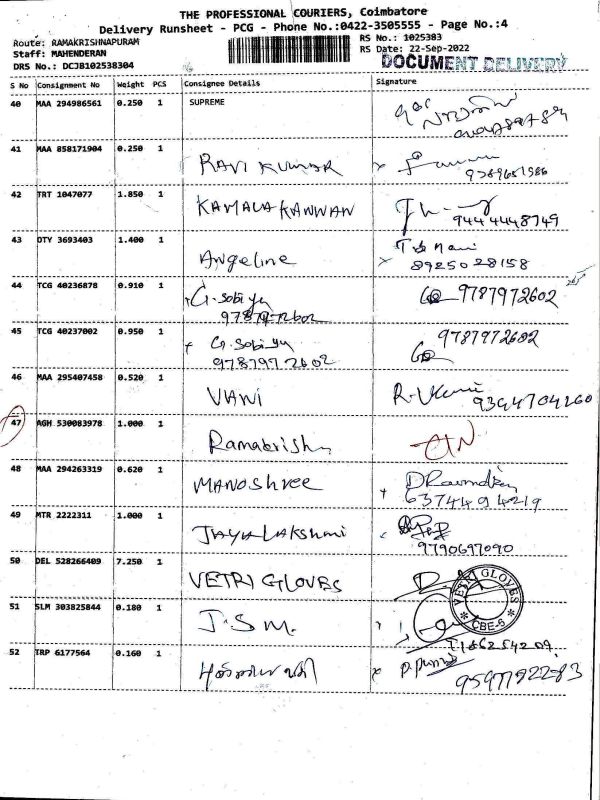 THE PROFESSIONAL COURIERS, Coimbatore
Delivery Runsheet - PCG - Phone No.:0422-3505555 - Page No.:4
Route: RAMAKRISHNAPURAM
RS No.: 1025383
Staff: MAHENDERAN
RS Date: 22-Sep-2022
DRS No.: DCJB102538304
DOCUMENT DELIVERY
S No Consignment No Weight PCS Consignee Details Signature
40 MAA 294986561 0.250 1 SUPREME
41 MAA 858171904 0.250 1 RAVI KUMAR
42 TRT 1047077 1.850 1 KAMALA KANNAN 9444448749
43 DTY 3693403 1.400 1 Angeline 8925028158
44 TCG 40236878 0.910 1 G. Sobiya 9787972602
9787972602
45 TCG 40237002 0.950 1 G. Sobiya 9787972602
9787972602
46 MAA 295407458 0.520 1 VANI
47 AGH 530083978 1.000 1 Ramakrishn
48 MAA 294263319 0.620 1 MANOShree
6374494219
49 MTR 2222311 1.000 1 JAYALAKShmi
9790697090
50 DEL 528266409 7.250 1 VETRI GLOVES
VETRI GLOVES CBE-6
51 SLM 303825844 0.180 1 J.S.M.
52 TRP 6177564 0.160 1